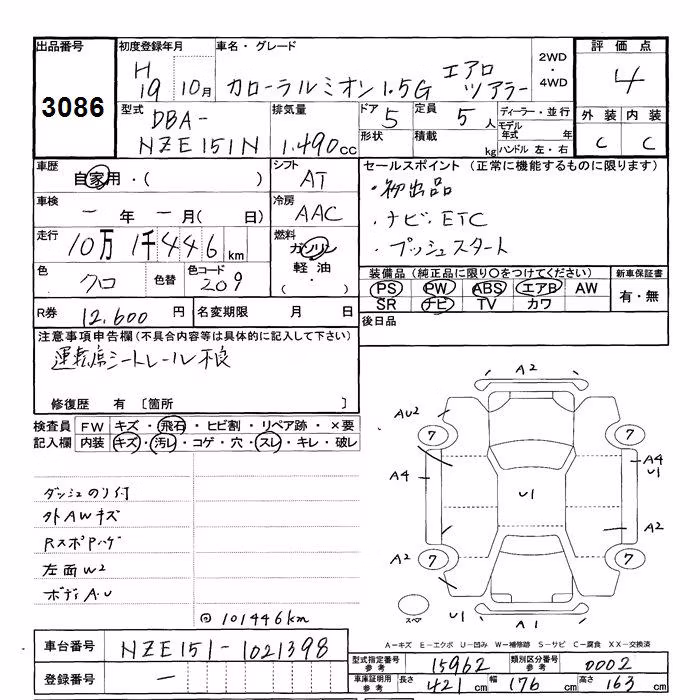 出品番号 初度登録年月 車名・グレード 2WD・4WD 評価点
3086 H19 10月 カローラルミオン 1.5G エアロ ツアラー 4
型式 排気量 ドア 定員 ディーラー・並行 外装 内装
DBA-NZE151N 1.490cc 5 5人 モデル年式 年 C C
形状 積載 kg ハンドル 左・右
車歴 自家用・( ) シフト AT セールスポイント(正常に機能するものに限ります)
車検 ー年ー月( 日) 冷房 AAC ・初出品
走行 10万1千446km 燃料 ガソリン 軽油・( ) ・ナビ.ETC
・プッシュスタート
色 クロ 色替 色コード 209 装備品(純正品に限り○をつけてください) 新車保証書
PS PW ABS エアB AW 有・無
SR ナビ TV カワ
R券 12,600円 名変期限 月 日 後日品
注意事項申告欄(不具合内容等は具体的に記入して下さい)
運転席シートレール不良
修復歴 有 〔箇所 〕
検査員記入欄 FW キズ・飛石・ヒビ割・リペア跡・×要
内装 キズ・汚レ・コゲ・穴・スレ・キレ・破レ
ダッシュのり付
外AWキズ
RスポPハゲ
左面W2
ボディA.U
@101446km
A2
AU2
7 7
A4 A4
U1
U1
A2
A2
7 7
スペア U1 A1
A-キズ E-エクボ U-凹み W-補修跡 S-サビ C-腐食 XX-交換済
車台番号 NZE151-1021398
型式指定番号参考 15962 類別区分番号参考 0002
登録番号 ー
車庫証明用参考 長さ 421cm 幅 176cm 高さ 163cm